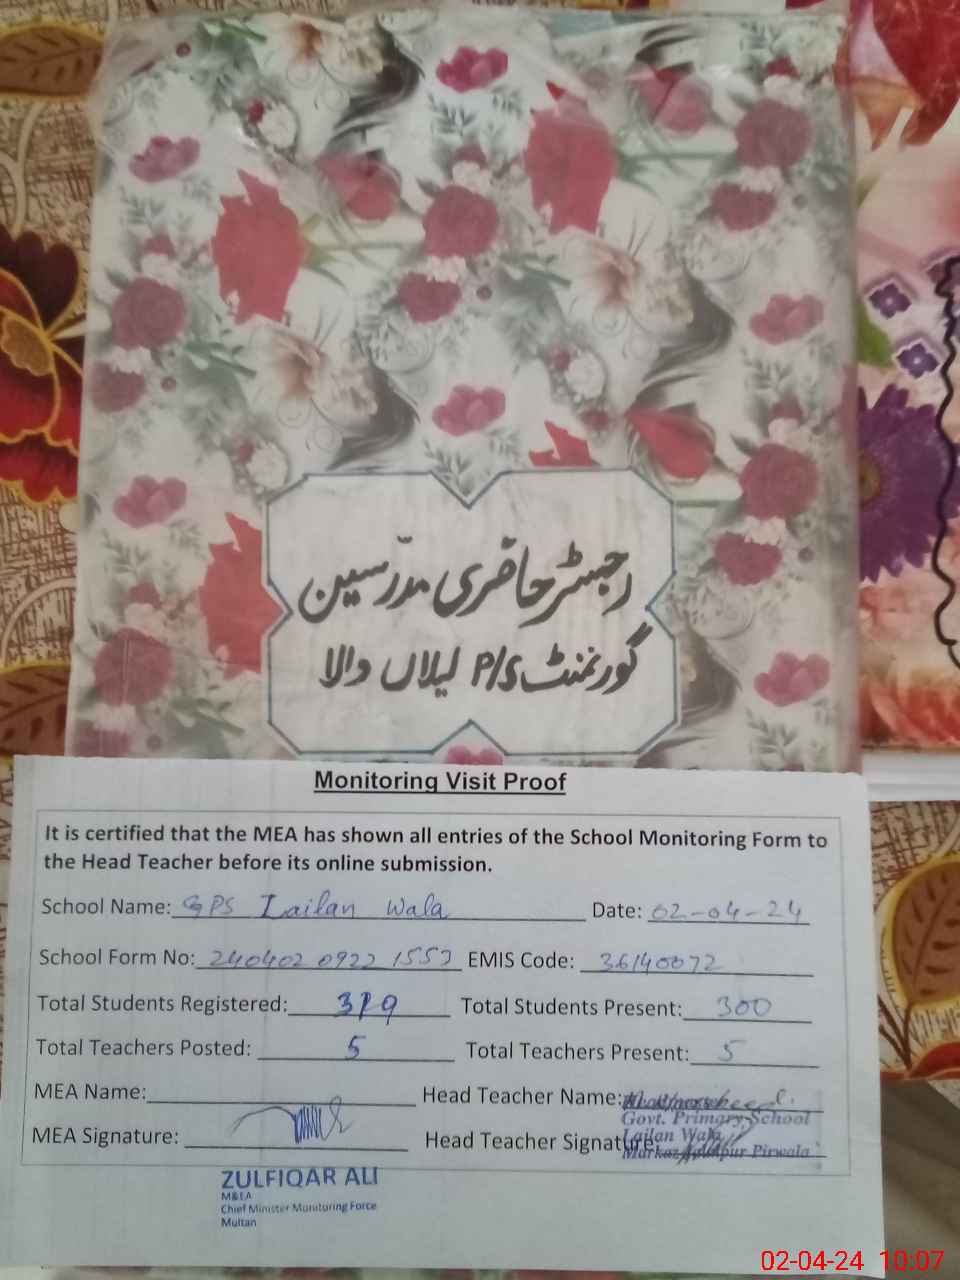 رجسٹر حاضری مدرسین
گورنمنٹ P/S لیلاں والا
Monitoring Visit Proof
It is certified that the MEA has shown all entries of the School Monitoring Form to
the Head Teacher before its online submission.
School Name: GPS Lailan Wala Date: 02-04-24
School Form No: 240402 0922 1552 EMIS Code: 36140072
Total Students Registered: 319 Total Students Present: 300
Total Teachers Posted: 5 Total Teachers Present: 5
MEA Name: Head Teacher Name:
Govt. Primary School
MEA Signature: Head Teacher Signature:
Lailan Wala
Markaz Pirwala
ZULFIQAR ALI
M&EA
Chief Minister Monitoring Force
Multan
02-04-24 10:07